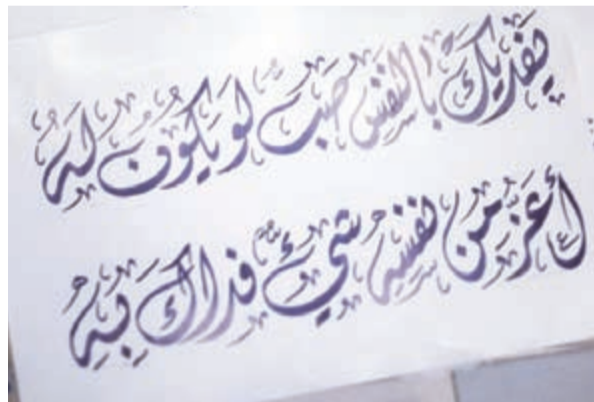 يَفديكَ بالنفسِ صَبٌّ لو يَكونُ لَهُ
أعَزُّ من نفسِهِ شيءٌ فداكَ بِهِ